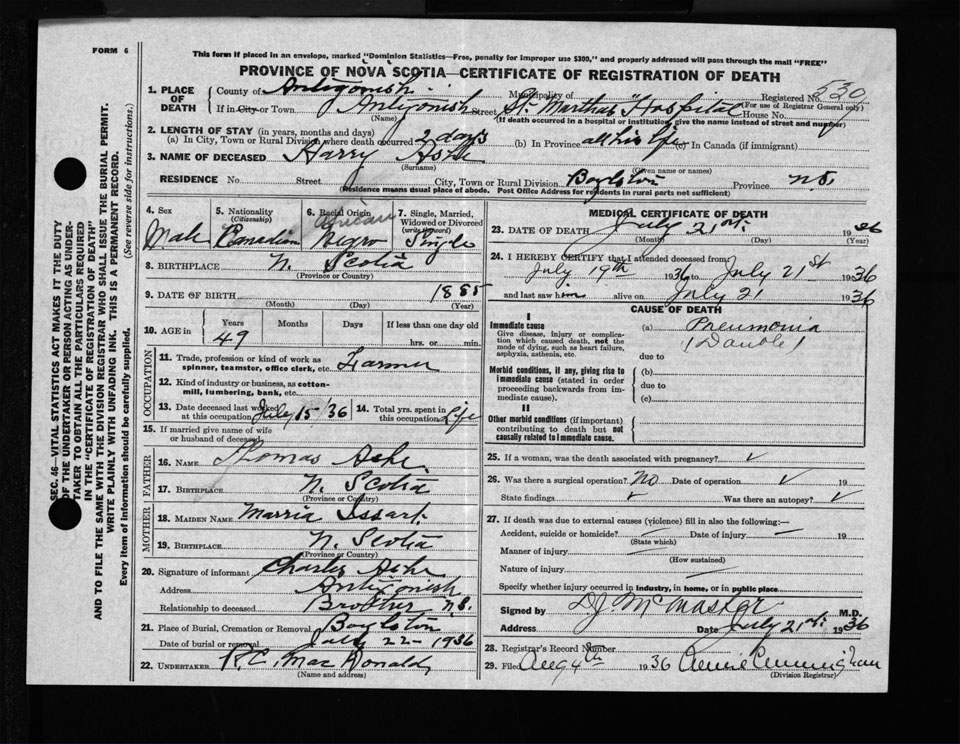 FORM 6
This form if placed in an envelope, marked "Dominion Statistics—Free, penalty for improper use $300," and properly addressed will pass through the mail "FREE"
PROVINCE OF NOVA SCOTIA—CERTIFICATE OF REGISTRATION OF DEATH
1. PLACE OF DEATH County of Antigonish Municipality of Registered No. 530
(For use of Registrar General only)
If in City or Town Antigonish Street St. Marthas Hospital House No.
(Name) (If death occurred in a hospital or institution give the name instead of street and number)
2. LENGTH OF STAY (in years, months and days)
(a) In City, Town or Rural Division where death occurred 2 days (b) In Province all his life (c) In Canada (if immigrant)
3. NAME OF DECEASED Harry Ashe
(Surname) (Given name or names)
RESIDENCE No. Street City, Town or Rural Division Boylston Province N.S.
(Residence means usual place of abode. Post Office Address for residents in rural parts not sufficient)
4. Sex 5. Nationality (Citizenship) 6. Racial Origin 7. Single, Married, Widowed or Divorced (write the word)
African
Male Canadian Negro Single
8. BIRTHPLACE N. Scotia
(Province or Country)
9. DATE OF BIRTH 1885
(Month) (Day) (Year)
10. AGE in Years Months Days If less than one day old
49 hrs. or min.
OCCUPATION
11. Trade, profession or kind of work as spinner, teamster, office clerk, etc. Farmer
12. Kind of industry or business, as cotton-mill, lumbering, bank, etc.
13. Date deceased last worked at this occupation July 15/36 14. Total yrs. spent in this occupation Life
15. If married give name of wife or husband of deceased
FATHER
16. NAME Thomas Ashe
17. BIRTHPLACE N. Scotia
(Province or Country)
MOTHER
18. MAIDEN NAME Marria
19. BIRTHPLACE N. Scotia
(Province or Country)
20. Signature of informant Charles Ashe
Address Antigonish
Relationship to deceased Brother N.S.
21. Place of Burial, Cremation or Removal Boylston
Date of burial or removal July 22 - 1936
22. UNDERTAKER R.C. MacDonald
(Name and address)
MEDICAL CERTIFICATE OF DEATH
23. DATE OF DEATH July 21st 1936
(Month) (Day) (Year)
24. I HEREBY CERTIFY that I attended deceased from
July 19th 1936 to July 21st 1936
and last saw him alive on July 21 1936
CAUSE OF DEATH
I
Immediate cause
Give disease, injury or complication which caused death, not the mode of dying, such as heart failure, asphyxia, asthenia, etc.
(a) Pneumonia
(Double)
due to
Morbid conditions, if any, giving rise to immediate cause (stated in order proceeding backwards from immediate cause).
(b)
due to
(c)
II
Other morbid conditions (if important) contributing to death but not causally related to immediate cause.
25. If a woman, was the death associated with pregnancy?
26. Was there a surgical operation? No Date of operation 19
State findings Was there an autopsy?
27. If death was due to external causes (violence) fill in also the following:—
Accident, suicide or homicide? Date of injury 19
(State which)
Manner of injury
(How sustained)
Nature of injury
Specify whether injury occurred in industry, in home, or in public place
Signed by D J McMaster M.D.
Address Date July 21st 1936
28. Registrar's Record Number
29. Filed Aug 4th 1936 Cunningham
(Division Registrar)
SEC. 46—VITAL STATISTICS ACT MAKES IT THE DUTY
OF THE UNDERTAKER OR PERSON ACTING AS UNDER-
TAKER TO OBTAIN ALL THE PARTICULARS REQUIRED
IN THE "CERTIFICATE OF REGISTRATION OF DEATH"
AND TO FILE THE SAME WITH THE DIVISION REGISTRAR WHO SHALL ISSUE THE BURIAL PERMIT.
WRITE PLAINLY WITH UNFADING INK. THIS IS A PERMANENT RECORD.
Every item of information should be carefully supplied. (See reverse side for instructions.)